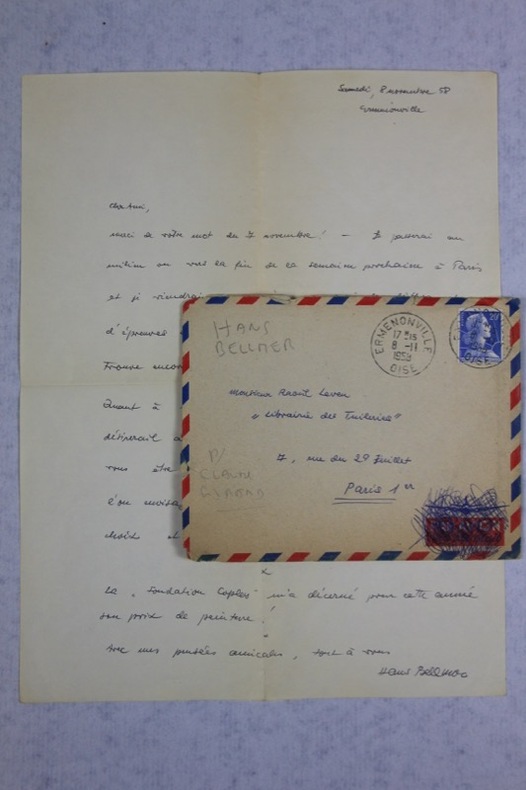 Samedi, 8 novembre 58
Ermenonville
cher Ami,
merci de votre mot du 7 novembre! – Je passerai au
milieu ou vers la fin de la semaine prochaine à Paris
et si viendrai
d'épreuves
Trouve encore
Quant à
désirerait
vous être
l'on
choix et
La "Fondation Copley" m'a décerné pour cette année
son prix de peinture!
Avec mes pensées amicales, tout à vous
Hans Bellmer
HANS
BELLMER
ERMENONVILLE
17H15
8 -11
1958
OISE
OISE
Monsieur Raoul Leven
"Librairie des Tuileries"
7, rue du 29 Juillet
Paris 1er
P/
CLAUDE